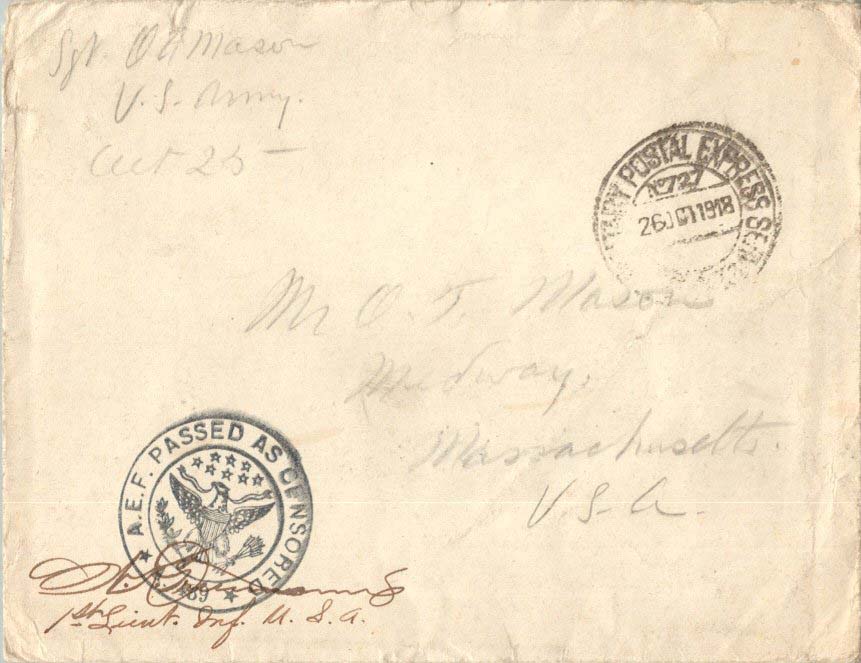 Sgt. O A Mason
U.S. Army.
Oct 25
MILITARY POSTAL EXPRESS SERVICE
No 727
26 OCT 1918
Mr O. T. Mason
Medway,
Massachusetts.
U.S.A.
A.E.F. PASSED AS CENSORED
1st Lieut. Inf. U.S.A.